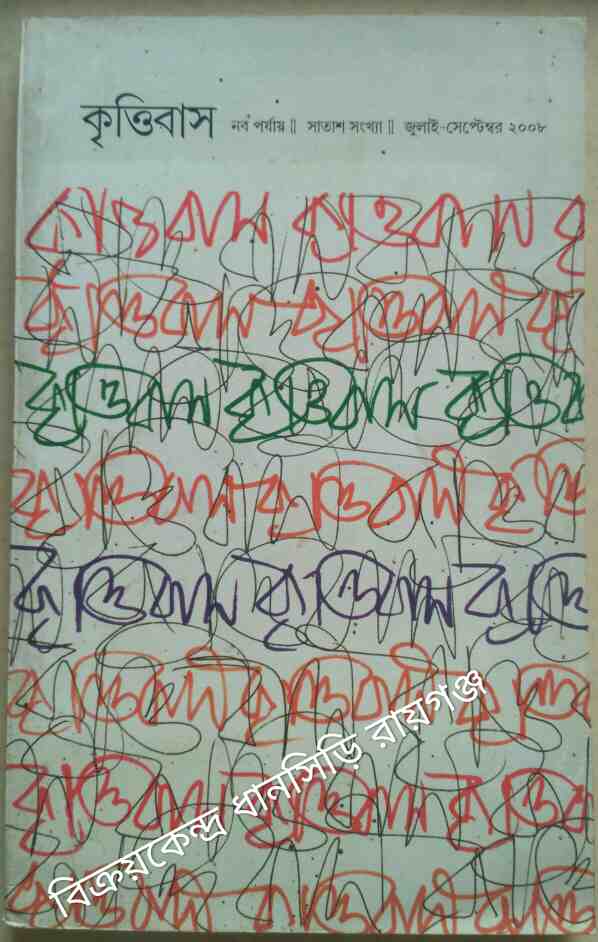 কৃত্তিবাস নব পর্যায় || সাতাশ সংখ্যা || জুলাই-সেপ্টেম্বর ২০০৮
কৃত্তিবাস কৃত্তিবাস কৃ
কৃত্তিবাস কৃত্তিবাস কৃ
কৃত্তিবাস কৃত্তিবাস কৃত্তিব
কৃত্তিবাস কৃত্তিবাস কৃত্তি
কৃত্তিবাস কৃত্তিবাস কৃত্তি
কৃত্তিবাস কৃত্তিবাস কৃত্তিব
কৃত্তিবাস কৃত্তিবাস কৃত্তিব
কৃত্তিবাস কৃত্তিবাস কৃত্তি
বিক্রয়কেন্দ্র ধানসিড়ি রায়গঞ্জ